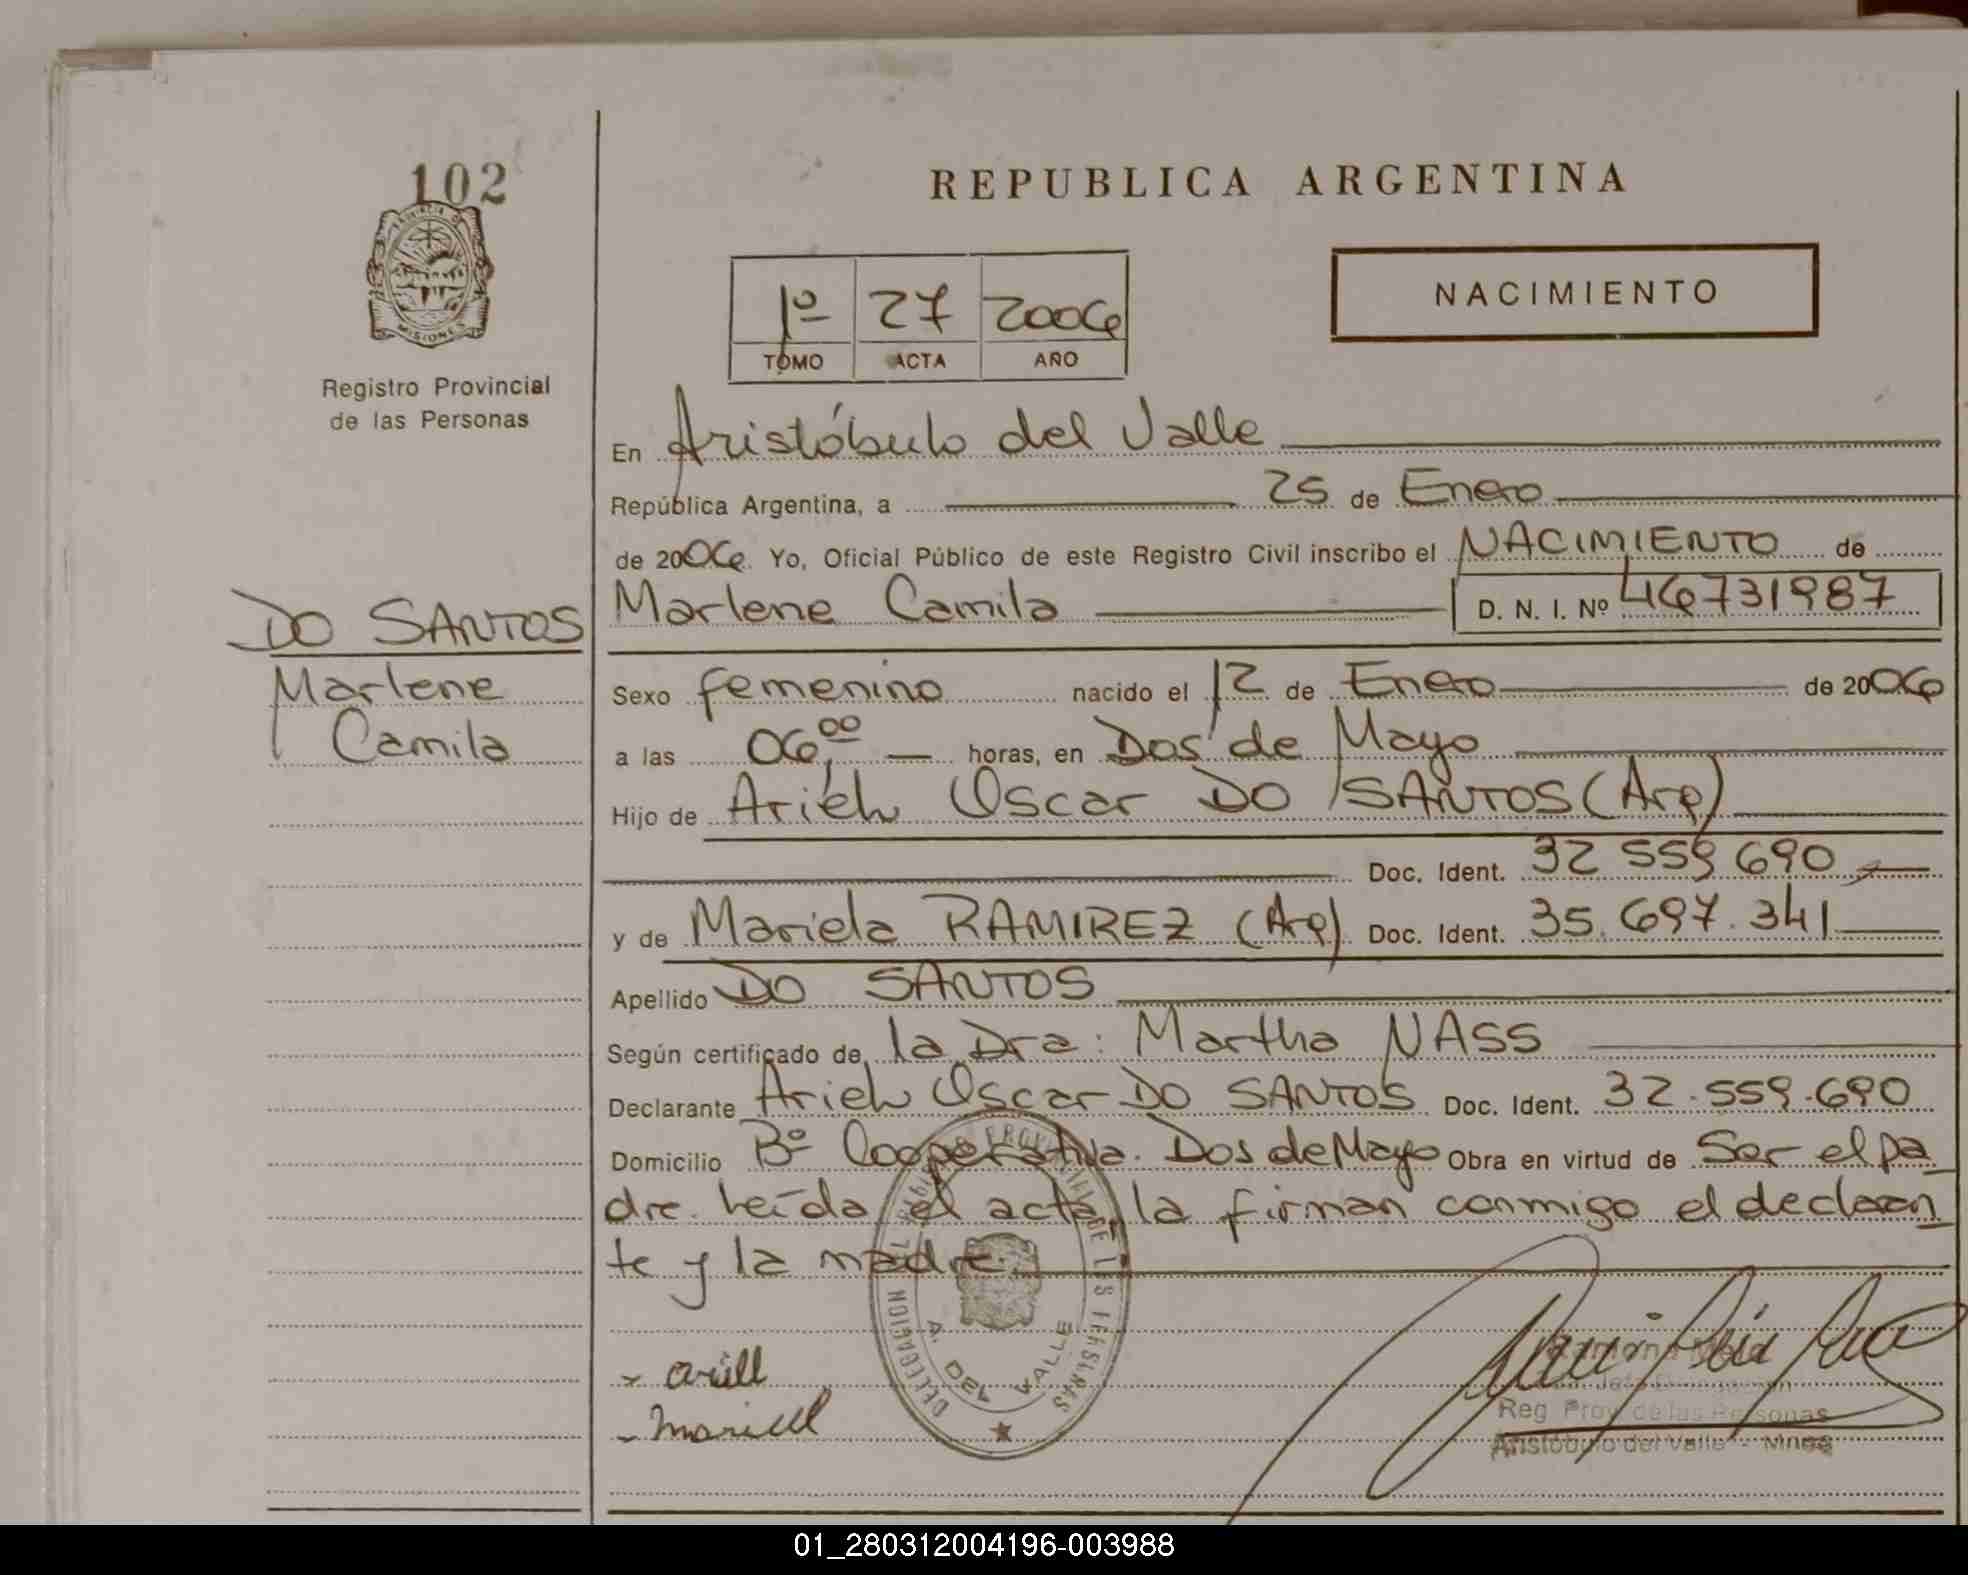 102
PROVINCIA DE
MISIONES
Registro Provincial
de las Personas
REPUBLICA ARGENTINA
1º 27 2006
TOMO ACTA AÑO
NACIMIENTO
En Aristóbulo del Valle
República Argentina, a 25 de Enero
de 2006 Yo, Oficial Público de este Registro Civil inscribo el NACIMIENTO de
Marlene Camila D. N. I. Nº 46731987
DO SANTOS
Marlene
Camila
Sexo femenino nacido el 12 de Enero de 2006
a las 06,00 horas, en Dos de Mayo
Hijo de Ariel Oscar DO SANTOS (Arg)
Doc. Ident. 32 559 690
y de Mariela RAMIREZ (Arg) Doc. Ident. 35.697.341
Apellido DO SANTOS
Según certificado de la Dra: Martha NASS
Declarante Ariel Oscar DO SANTOS Doc. Ident. 32.559.690
Domicilio Bº Cooperativa. Dos de Mayo Obra en virtud de Ser el pa
dre. Leída el acta, la firman conmigo el declaran
te y la madre.
A. DEL VALLE
Reg Prov de las Personas
Aristóbulo del Valle - Mnes
01_280312004196-003988